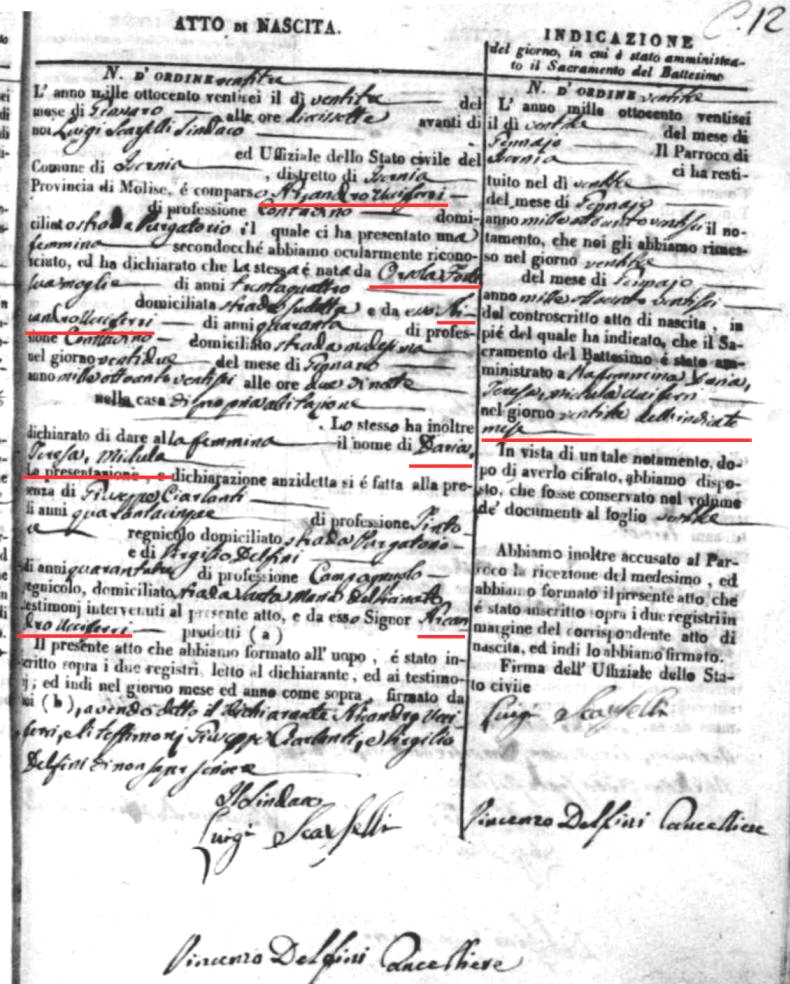 C. 12
ATTO DI NASCITA.
N. D' ORDINE ventitre
L' anno mille ottocento ventisei il dì ventitre del
mese di Gennaro alle ore diecissette avanti di
noi Luigi Scarselli Sindaco
ed Uffiziale dello Stato civile del
Comune di Isernia , distretto di Isernia
Provincia di Molise, é comparso Nicandro Ucciferri
di professione Contadino domi-
ciliato strada Purgatorio il quale ci ha presentato una
femmina secondocchè abbiamo ocularmente ricono-
sciuto, ed ha dichiarato che la stessa é nata da Orsola
sua moglie di anni trentaquattro
domiciliata strada sudetta e da esso Ni-
candro Ucciferri di anni quaranta di profes-
sione Contadino domiciliato strada medesima
nel giorno ventidue del mese di Gennaro
anno mille ottocento ventisei alle ore due di notte
nella casa di propria abitazione
. Lo stesso ha inoltre
dichiarato di dare alla femmina il nome di Daria,
Teresa, Michela
La presentazione , e dichiarazione anzidetta si é fatta alla pre-
senza di Giuseppe Ciarlanti
di anni quarantacinque di professione
regnicolo domiciliato strada Purgatorio
e di Virgilio Delfini
di anni quarantatre di professione Campagnuolo
regnicolo, domiciliato strada Santa Maria
testimonj intervenuti al presente atto, e da esso Signor Nican
dro Ucciferri prodotti (a)
Il presente atto che abbiamo formato all' uopo , é stato in-
scritto sopra i due registri, letto al dichiarante, ed ai testimo-
nj; ed indi nel giorno mese ed anno come sopra firmato da
noi (b), avendo detto il dichiarante Nicandro Ucci
ferri, e li testimonj Giuseppe Ciarlanti, e Virgilio
Delfini di non saper scrivere
Il Sindaco
Luigi Scarselli
Vincenzo Delfini Cancelliere
INDICAZIONE
del giorno, in cui é stato amministra-
to il Sacramento del Battesimo
N. D' ORDINE ventitre
L' anno mille ottocento ventisei
il dì ventitre del mese di
Gennajo Il Parroco di
Isernia ci ha resti-
tuito nel dì ventitre
del mese di Gennajo
anno mille ottocento ventisei il no-
tamento, che noi gli abbiamo rimes-
so nel giorno ventitre
del mese di Gennajo
anno mille ottocento ventisei
del controscritto atto di nascita , in
piè del quale ha indicato, che il Sa-
cramento del Battesimo é stato am-
ministrato a Daria,
Teresa, Michela Ucciferri
nel giorno ventitre dell' indicato
mese
In vista di un tale notamento, do-
po di averlo cifrato, abbiamo dispo-
sto, che fosse conservato nel volume
de' documenti al foglio ventitre
Abbiamo inoltre accusato al Par-
roco la ricezione del medesimo , ed
abbiamo formato il presente atto che
é stato inscritto sopra i due registri in
margine del corrispondente atto di
nascita, ed indi lo abbiamo firmato.
Firma dell' Uffiziale dello Sta-
to civile
Luigi Scarselli
Vincenzo Delfini Cancelliere